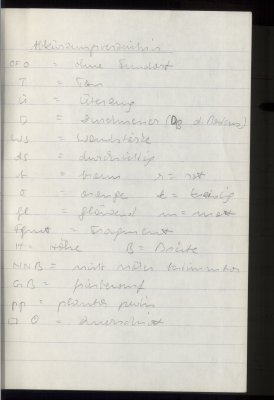 Abkürzungsverzeichnis
OFO = ohne Fundort
T = Ton
Ü = Überzug
D = Durchmesser (DB d. Bodens)
WS = Wandstärke
ds = dickwandig
b = braun r = rot
o = orange
gl = glänzend m = matt
Fgmt = Fragment
H = Höhe B = Breite
NNB = nicht näher bestimmbar
GB = 
pp = planta pedis
□ O = Querschnitt